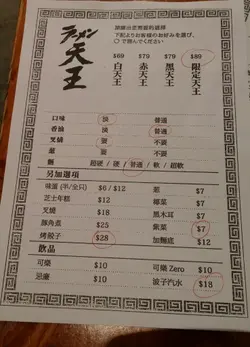 ラーメン
天王
請圈出您想要的選擇
下記よりお客様のお好みを選び、
○で囲んでください
$69 $79 $79 $89
白天王 赤天王 黒天王 限定天王
口味 淡 普通
香油 淡 普通
叉燒 要 不要
蔥 要 不要
麵 超硬 / 硬 / 普通 / 軟 / 超軟
另加選項
味蛋 (半/全只) $6 / $12 蔥 $7
芝士年糕 $12 椰菜 $7
叉燒 $18 黑木耳 $7
豚角煮 $25 紫菜 $7
烤餃子 $28 加麵底 $12
飲品
可樂 $10 可樂 Zero $10
忌廉 $10 波子汽水 $18